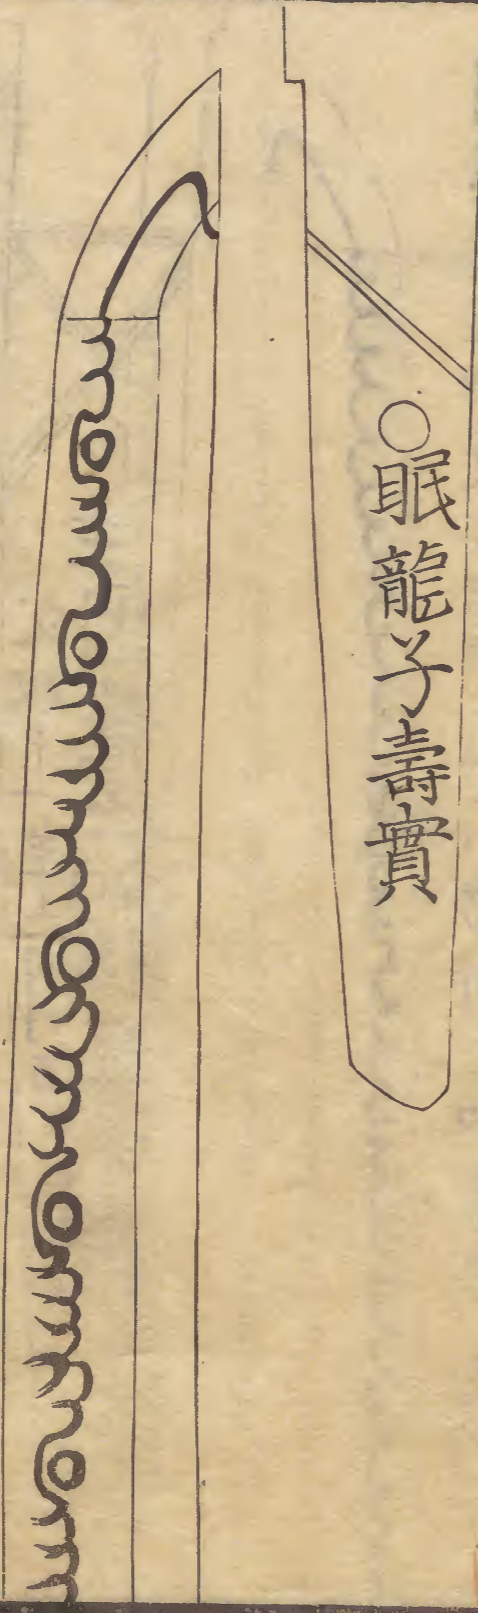 ○眠龍子壽實